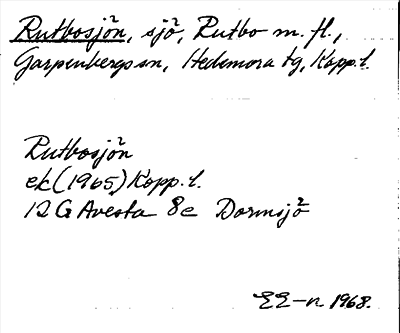 Rutbosjön, sjö, Rutbo m. fl.,
Garpenbergs sn, Hedemora tg, Kopp. l.
Rutbosjön
ek (1965) Kopp. l.
12 G Avesta 8e Dormsjö
EE-n 1968.